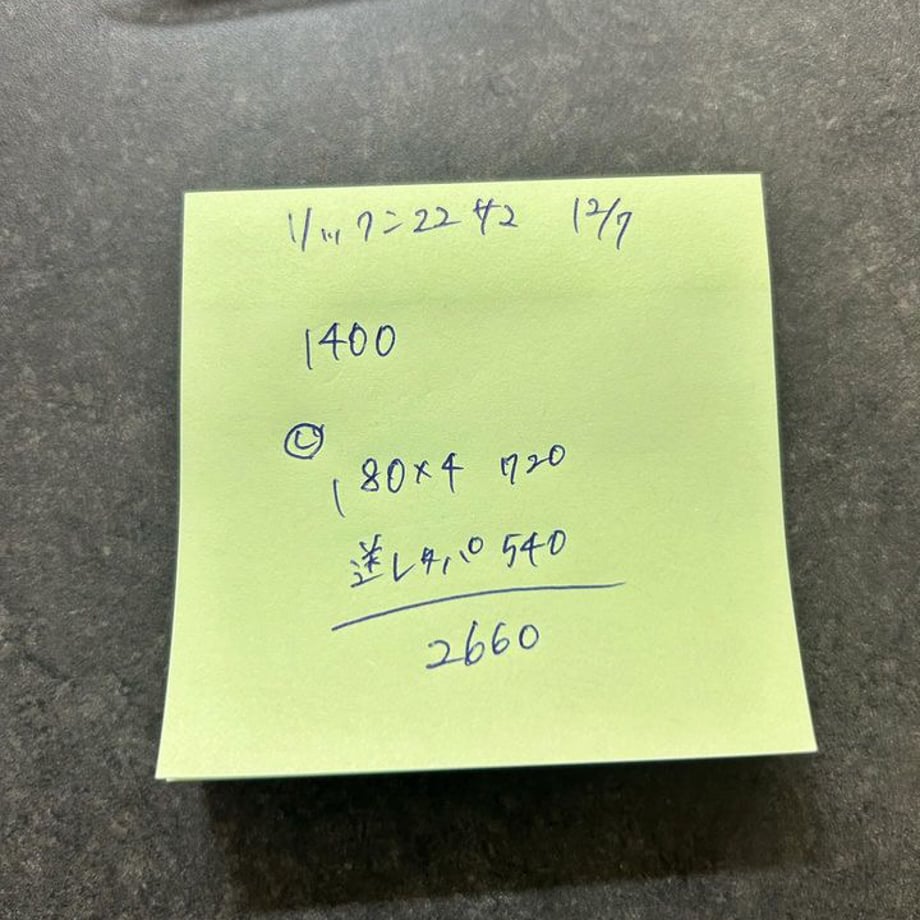 リックニ22サ2 12/7
1400
Ⓒ
180×4 720
送レタパ 540
2660